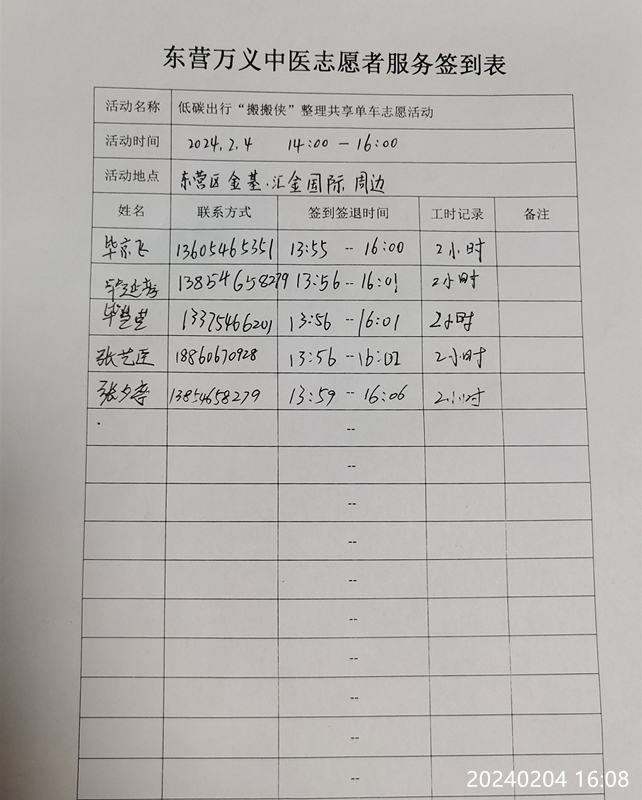 东营万义中医志愿者服务签到表
活动名称 低碳出行“搬搬侠”整理共享单车志愿活动
活动时间 2024.2.4 14:00 — 16:00
活动地点 东营区金基.汇金国际 周边
姓名 联系方式 签到签退时间 工时记录 备注
毕京飞 13605465351 13:55 -- 16:00 2小时
13854658279 13:56 -- 16:01 2小时
13375466201 13:56 -- 16:01 2小时
张艺匠 18860670928 13:56 -- 16:02 2小时
张夕李 13854658279 13:59 -- 16:06 2小时
--
--
--
--
--
--
--
--
--
--
20240204 16:08